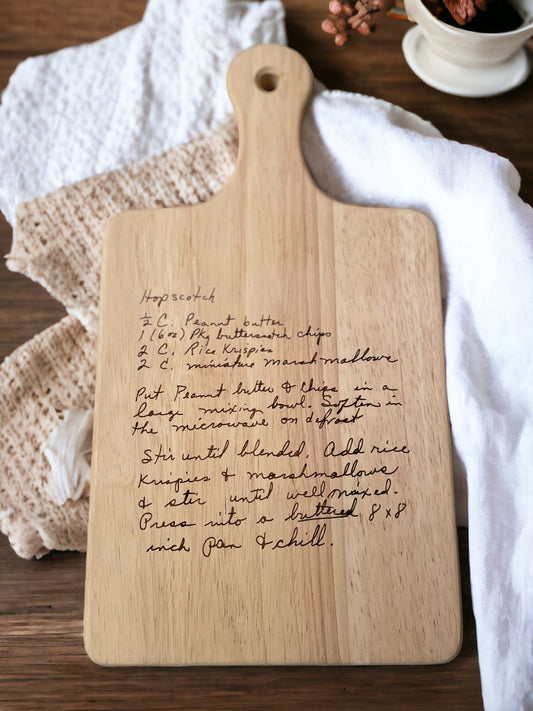 Hopscotch
½ C. Peanut butter
1 (6 oz) Pkg butterscotch chips
2 C. Rice Krispies
2 C. miniature marshmallows
Put Peanut butter & Chips in a
large mixing bowl. Soften in
the microwave on defrost
Stir until blended. Add rice
Krispies & marshmallows
& stir until well mixed.
Press into a buttered 8 x 8
inch pan & chill.